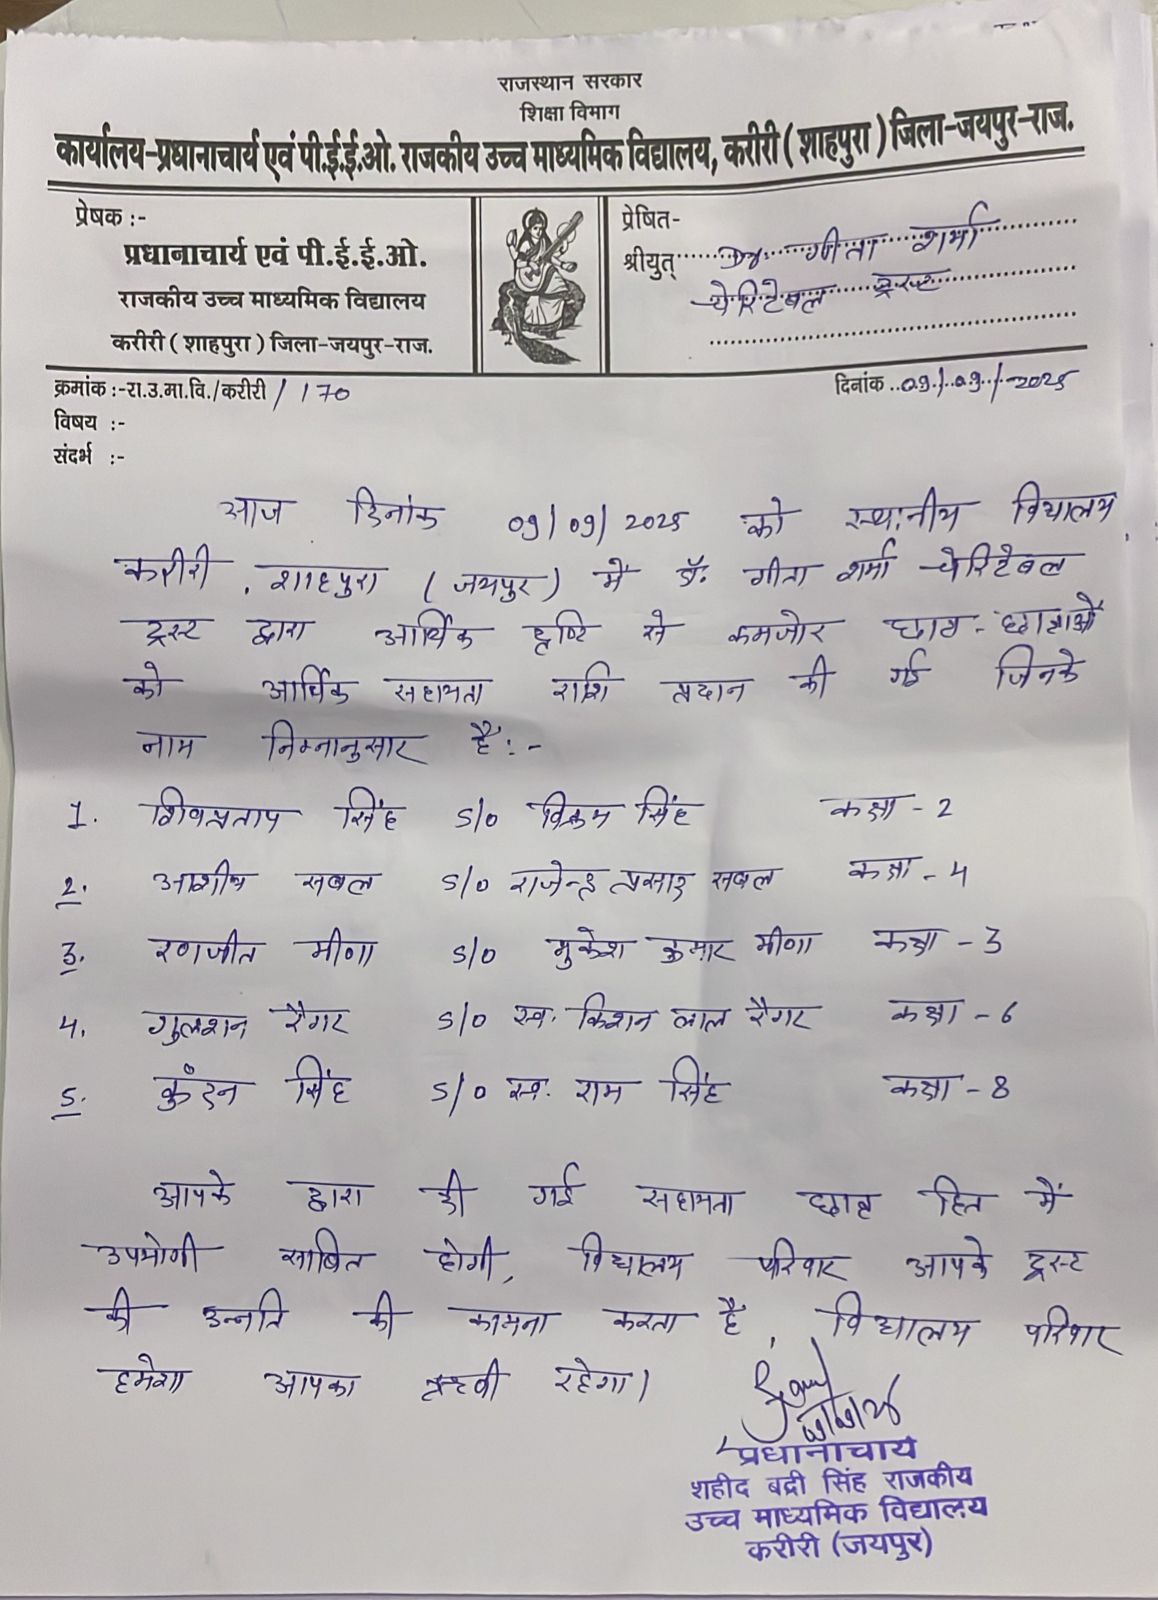 राजस्थान सरकार
शिक्षा विभाग
कार्यालय-प्रधानाचार्य एवं पी.ई.ई.ओ. राजकीय उच्च माध्यमिक विद्यालय, करीरी ( शाहपुरा ) जिला-जयपुर-राज.
प्रेषक :-
प्रधानाचार्य एवं पी.ई.ई.ओ.
राजकीय उच्च माध्यमिक विद्यालय
करीरी ( शाहपुरा ) जिला-जयपुर-राज.
प्रेषित-
श्रीयुत् Dr. गीता शर्मा
चेरिटेबल ट्रस्ट
क्रमांक :-रा.उ.मा.वि./करीरी / 170
दिनांक 09/09/2025
विषय :-
संदर्भ :-
आज दिनांक 09/09/2025 को स्थानीय विद्यालय
करीरी, शाहपुरा (जयपुर) में डॉ. गीता शर्मा चेरिटेबल
ट्रस्ट द्वारा आर्थिक दृष्टि से कमजोर छात्र-छात्राओं
को आर्थिक सहायता राशि प्रदान की गई जिनके
नाम निम्नानुसार हैं:-
1. शिवप्रताप सिंह S/O विक्रम सिंह कक्षा - 2
2. आशीष सबल S/O राजेन्द्र प्रसाद सबल कक्षा - 4
3. रणजीत मीणा S/O मुकेश कुमार मीणा कक्षा - 3
4. गुलशन रैगर S/O स्व. किशन लाल रैगर कक्षा - 6
5. कुंदन सिंह S/O स्व. राम सिंह कक्षा - 8
आपके द्वारा की गई सहायता छात्र हित में
उपयोगी साबित होगी, विद्यालय परिवार आपके ट्रस्ट
की उन्नति की कामना करता है, विद्यालय परिवार
हमेशा आपका ऋणी रहेगा।
प्रधानाचार्य
शहीद बद्री सिंह राजकीय
उच्च माध्यमिक विद्यालय
करीरी (जयपुर)